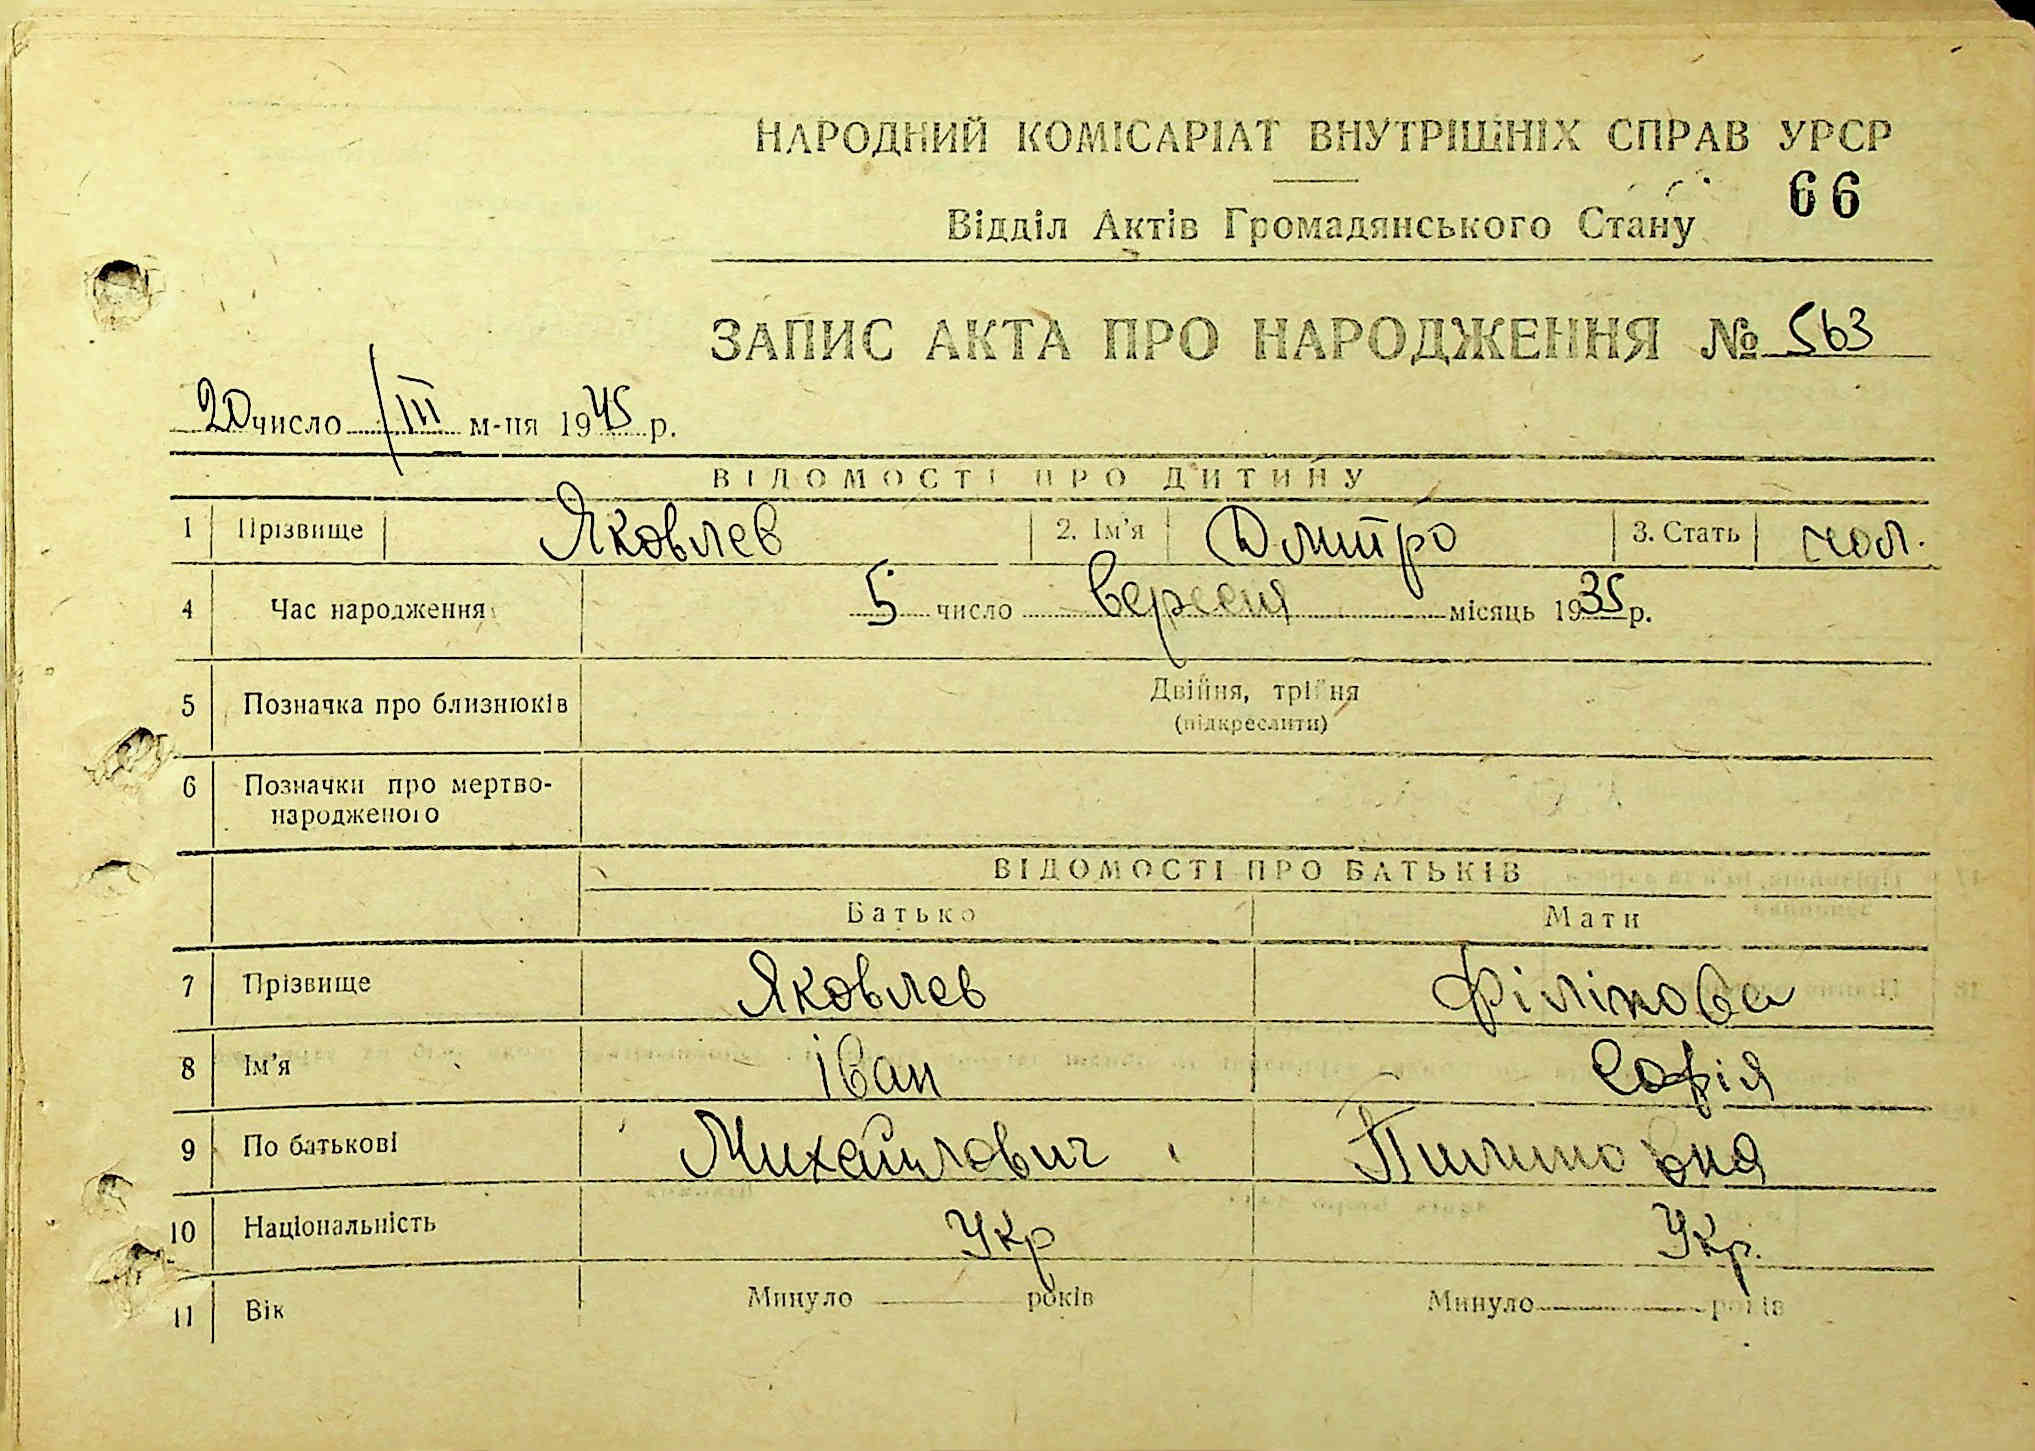 НАРОДНИЙ КОМІСАРІАТ ВНУТРІШНІХ СПРАВ УРСР
66
Відділ Актів Громадянського Стану
ЗАПИС АКТА ПРО НАРОДЖЕННЯ № 563
20 число III м-ця 1945 р.
ВІДОМОСТІ ПРО ДИТИНУ
1 Прізвище Яковлев 2. Ім'я Дмитро 3. Стать чол.
4 Час народження 5 число вересня місяць 1935 р.
5 Позначка про близнюків Двійня, трійня
(підкреслити)
6 Позначки про мертво-
народженого
ВІДОМОСТІ ПРО БАТЬКІВ
Батько Мати
7 Прізвище Яковлев Філінова
8 Ім'я Іван Софія
9 По батькові Михайлович Пилиповна
10 Національність Укр Укр.
11 Вік Минуло років Минуло років